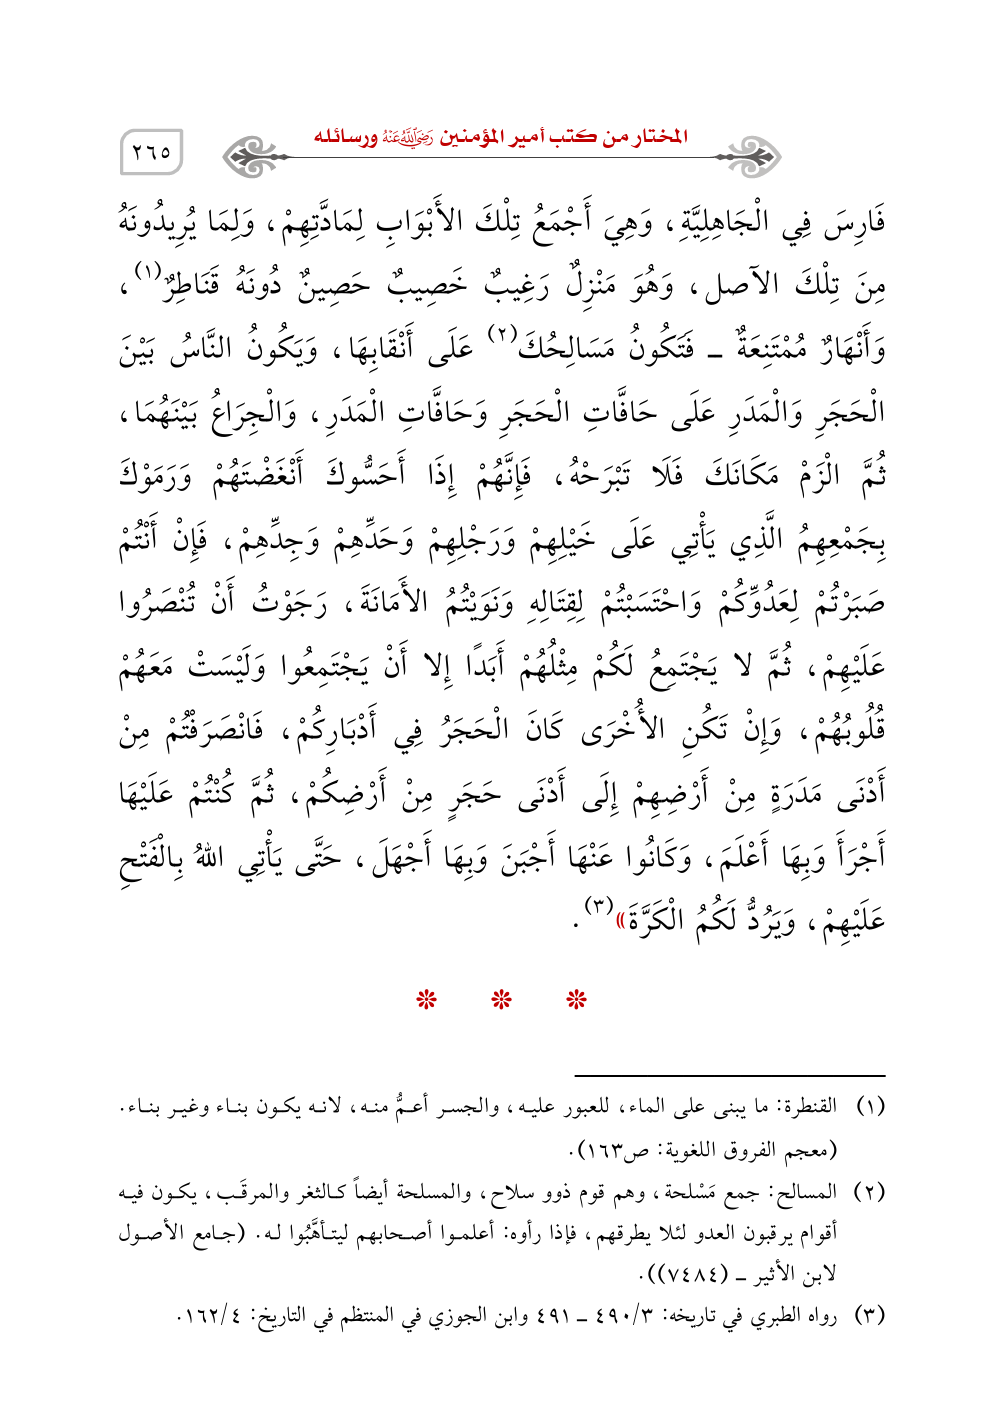 المختار من كتب أمير المؤمنين رَضِيَ اللَّهُ عَنْهُ ورسائله
٢٦٥
فَارِسَ فِي الْجَاهِلِيَّةِ، وَهِيَ أَجْمَعُ تِلْكَ الأَبْوَابِ لِمَادَّتِهِمْ، وَلِمَا يُرِيدُونَهُ
مِنَ تِلْكَ الآصل، وَهُوَ مَنْزِلٌ رَغِيبٌ خَصِيبٌ حَصِينٌ دُونَهُ قَنَاطِرُ(١)،
وَأَنْهَارٌ مُمْتَنِعَةٌ ـ فَتَكُونُ مَسَالِحُكَ(٢) عَلَى أَنْقَابِهَا، وَيَكُونُ النَّاسُ بَيْنَ
الْحَجَرِ وَالْمَدَرِ عَلَى حَافَّاتِ الْحَجَرِ وَحَافَّاتِ الْمَدَرِ، وَالْجِرَاعُ بَيْنَهُمَا،
ثُمَّ الْزَمْ مَكَانَكَ فَلَا تَبْرَحْهُ، فَإِنَّهُمْ إِذَا أَحَسُّوكَ أَنْغَضْتَهُمْ وَرَمَوْكَ
بِجَمْعِهِمُ الَّذِي يَأْتِي عَلَى خَيْلِهِمْ وَرَجْلِهِمْ وَحَدِّهِمْ وَجِدِّهِمْ، فَإِنْ أَنْتُمْ
صَبَرْتُمْ لِعَدُوِّكُمْ وَاحْتَسَبْتُمْ لِقِتَالِهِ وَنَوَيْتُمُ الأَمَانَةَ، رَجَوْتُ أَنْ تُنْصَرُوا
عَلَيْهِمْ، ثُمَّ لا يَجْتَمِعُ لَكُمْ مِثْلُهُمْ أَبَدًا إِلا أَنْ يَجْتَمِعُوا وَلَيْسَتْ مَعَهُمْ
قُلُوبُهُمْ، وَإِنْ تَكُنِ الأُخْرَى كَانَ الْحَجَرُ فِي أَدْبَارِكُمْ، فَانْصَرَفْتُمْ مِنْ
أَدْنَى مَدَرَةٍ مِنْ أَرْضِهِمْ إِلَى أَدْنَى حَجَرٍ مِنْ أَرْضِكُمْ، ثُمَّ كُنْتُمْ عَلَيْهَا
أَجْرَأَ وَبِهَا أَعْلَمَ، وَكَانُوا عَنْهَا أَجْبَنَ وَبِهَا أَجْهَلَ، حَتَّى يَأْتِي اللهُ بِالْفَتْحِ
عَلَيْهِمْ، وَيَرُدُّ لَكُمُ الْكَرَّةَ»(٣).
(١) القنطرة: ما يبنى على الماء، للعبور عليه، والجسر أعمُّ منه، لانه يكون بناء وغير بناء.
(معجم الفروق اللغوية: ص١٦٣).
(٢) المسالح: جمع مَسْلحة، وهم قوم ذوو سلاح، والمسلحة أيضاً كالثغر والمرقَب، يكون فيه
أقوام يرقبون العدو لئلا يطرقهم، فإذا رأوه: أعلموا أصحابهم ليتأهَّبُوا له. (جامع الأصول
لابن الأثير ـ (٧٤٨٤)).
(٣) رواه الطبري في تاريخه: ٣/ ٤٩٠ ـ ٤٩١ وابن الجوزي في المنتظم في التاريخ: ٤/ ١٦٢.